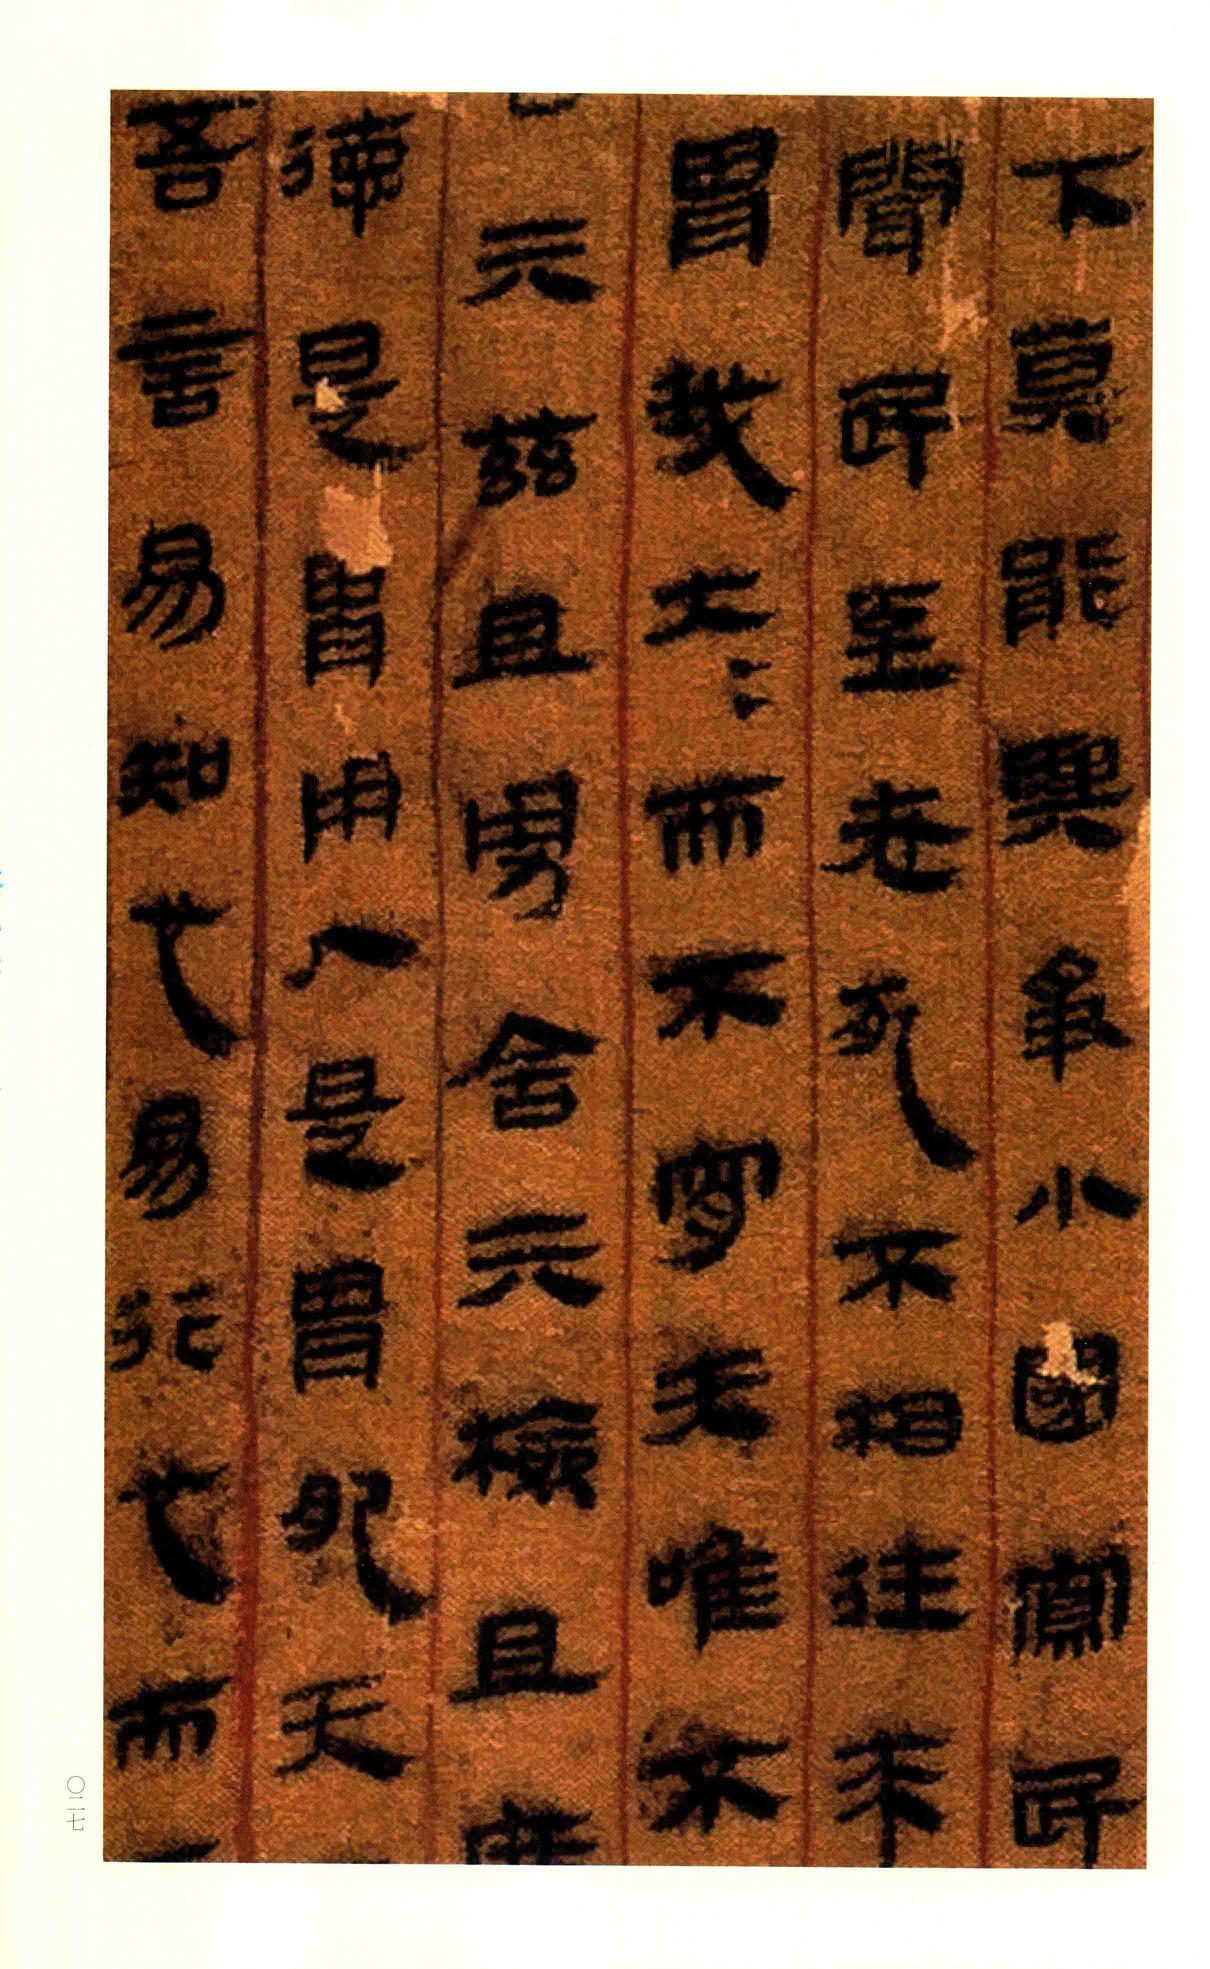 下莫能與爭小國寡民
聞民至老死不相往來
胃我大=而不宵夫唯不
亓茲且勇舍亓檢且
德是胃用人是胃肥天
吾言易知也易行也而
〇二七